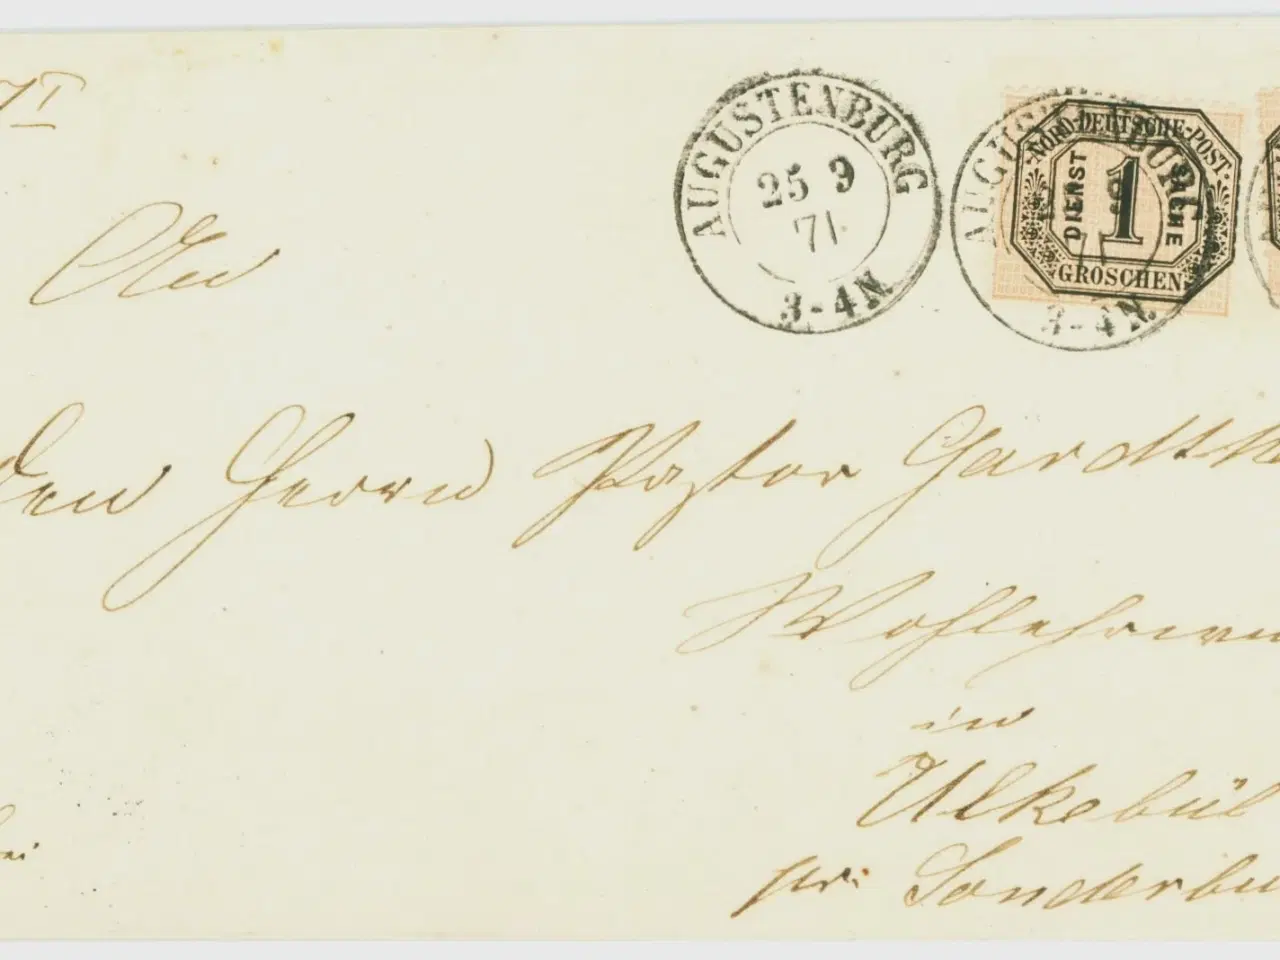 AUGUSTENBURG
25 9
71
3-4 N.
AUGUSTENBURG
3-4 N.
NORD-DEUTSCHE-POST
DIENST 1 SACHE
GROSCHEN
An
den Herrn Pastor
Wohlehrwü
in
Ulkebül
pr: Sonderbu